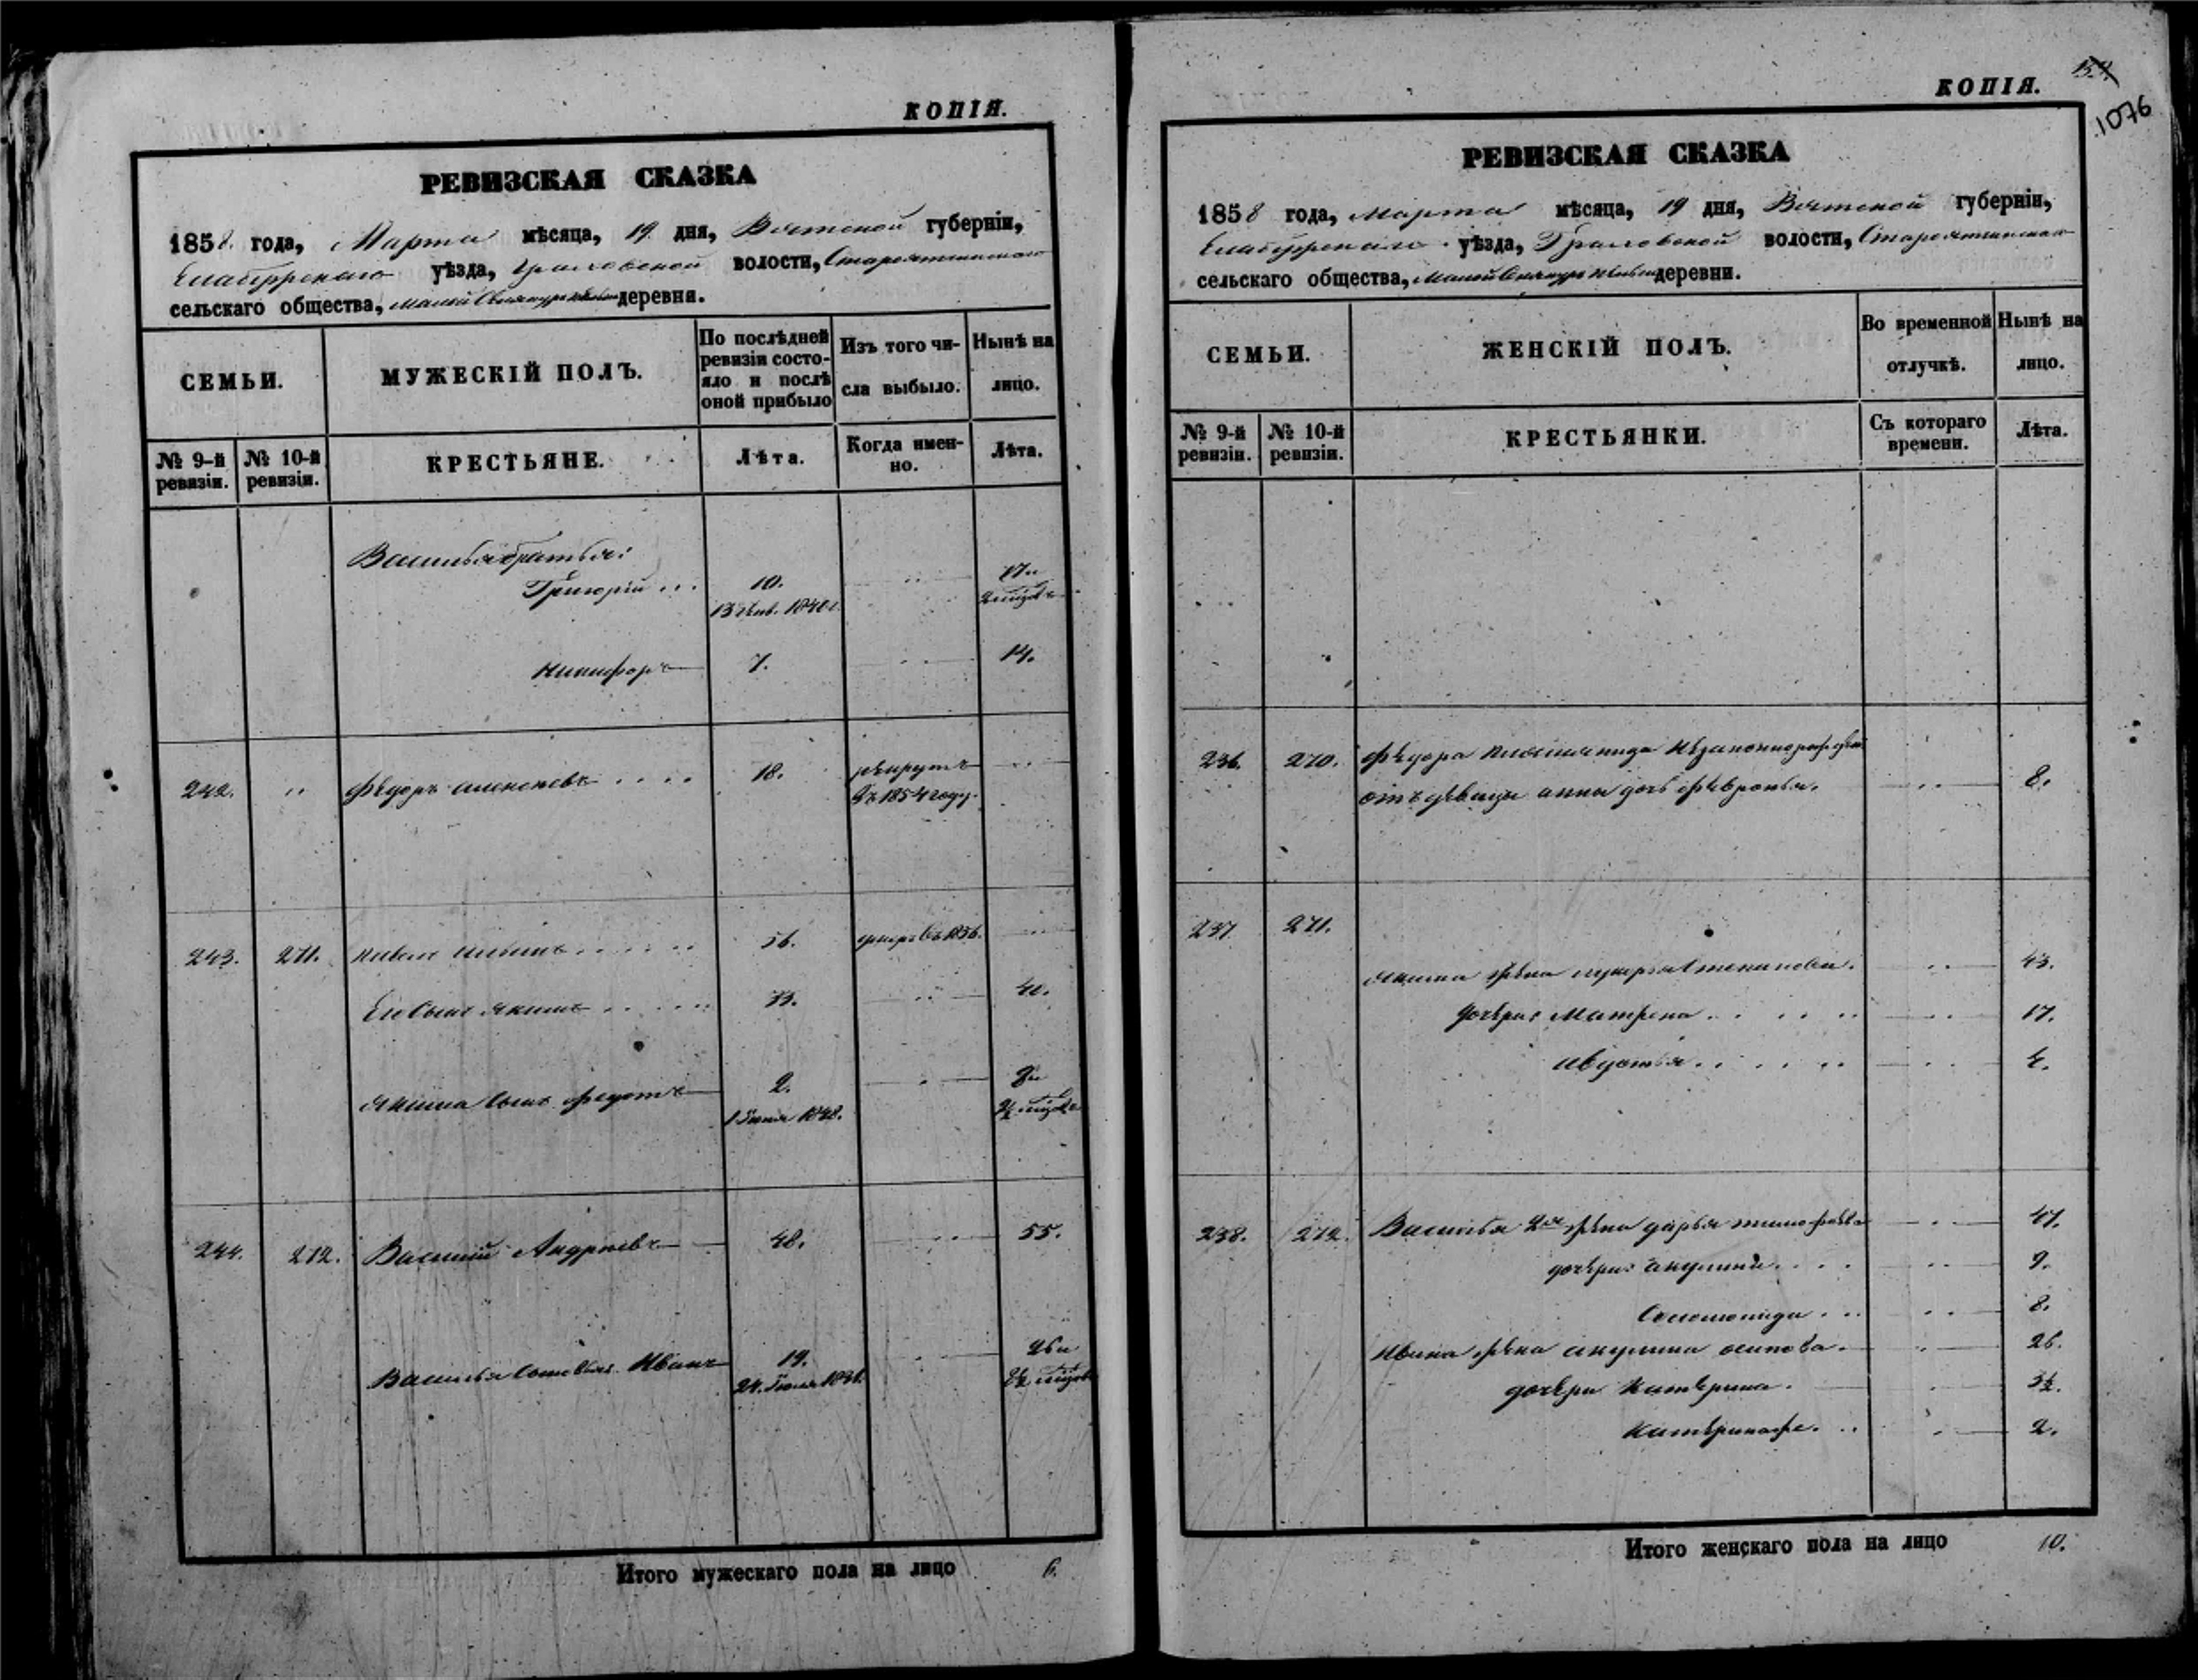 КОПІЯ.
РЕВИЗСКАЯ СКАЗКА
1858 года, Марта мѣсяца, 19 дня, Вятской губерніи,
уѣзда, Граховской волости,
сельскаго общества, Малой деревни.
СЕМЬИ.
МУЖЕСКІЙ ПОЛЪ.
По послѣдней ревизіи состояло и послѣ оной прибыло
Изъ того числа выбыло.
Нынѣ на лицо.
№ 9-й ревизіи.
№ 10-й ревизіи.
КРЕСТЬЯНЕ.
Лѣта.
Когда именно.
Лѣта.
Василья братья:
Григорій 10. 17 и
13 Янв. 1840 г. 2 мѣсяц.
Никифоръ 7. 14.
242. Федоръ Алексѣевъ 18. рекрутъ
въ 1854 году.
243. 271. 56. умеръ въ 1856.
Его сынъ Якимъ 33. 40.
Якима сынъ Федотъ 2. 8 и
1848.
244. 272. Василій Андреевъ 48. 55.
Василья сыновья: Иванъ 19. 26 и
24
Итого мужескаго пола на лицо 6.
КОПІЯ.
154
1076
РЕВИЗСКАЯ СКАЗКА
1858 года, Марта мѣсяца, 19 дня, Вятской губерніи,
уѣзда, Граховской волости,
сельскаго общества, Малой деревни.
СЕМЬИ.
ЖЕНСКІЙ ПОЛЪ.
Во временной отлучкѣ.
Нынѣ на лицо.
№ 9-й ревизіи.
№ 10-й ревизіи.
КРЕСТЬЯНКИ.
Съ котораго времени.
Лѣта.
236. 270. Федора
отъ девицы Анны дочь Февронья. 8.
237 271.
Якима жена Степанова. 43.
дочери: Матрена 17.
Авдотья
238. 272. Василья 2я жена Дарья Тимофеева 47.
дочери: Акулина 9.
Соломонида 8.
Ивана жена Акулина Осипова. 26.
дочери Катерина. 3½.
Катерина же. 2.
Итого женскаго пола на лицо 10.